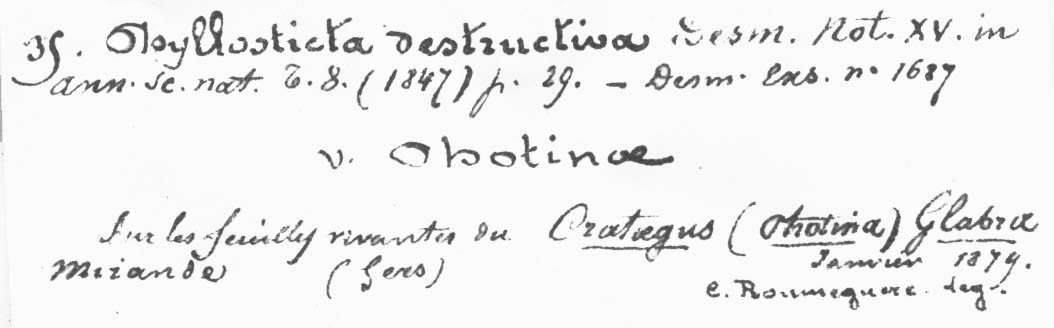 35. Phyllosticta destructiva Desm. Not. XV. in
ann. Sc. nat. T. 8. (1847) p. 29. — Desm. Exs. n° 1627
v. Photinae
Sur les feuilles vivantes du Crataegus (Photinia) Glabra
Mirande (Gers) Janvier 1879.
C. Roumeguere. leg.